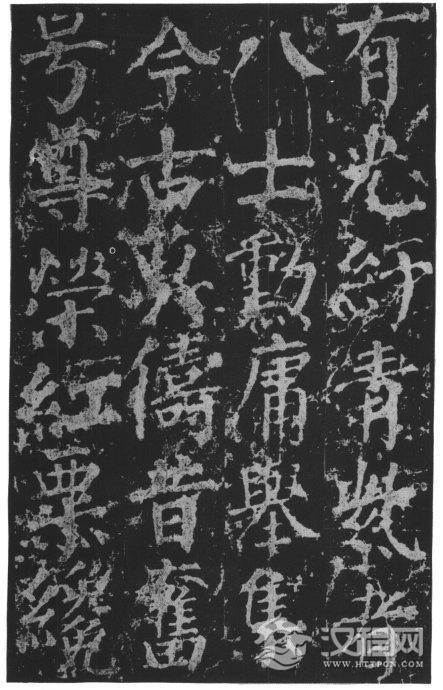 有光紆青紫者
八士勳庸舉
今古儔昔奮
号尊榮紅粟纔
汉程网
WWW.HTTPCN.COM